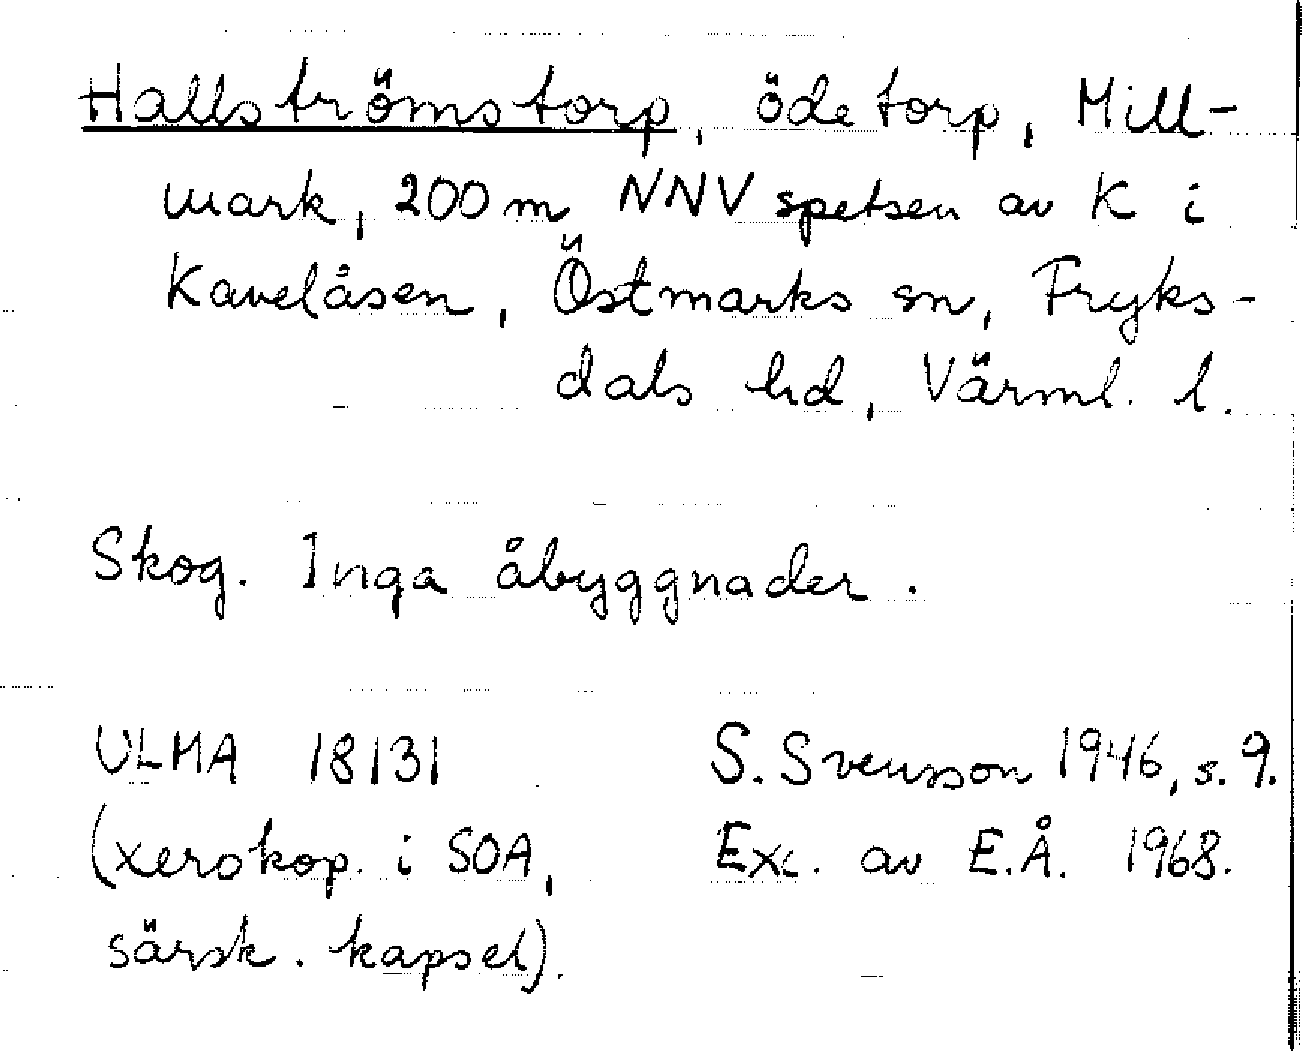 Hallströmstorp, ödetorp, Mill-
mark, 200 m NNV spetsen av K i
Kavelåsen, Östmarks sn, Fryks-
dals hd, Värml. l.
Skog. Inga åbyggnader.
ULMA 18131
(xerokop. i SOA,
särsk. kapsel).
S. Svensson 1946, s. 9.
Exc. av E.Å. 1968.